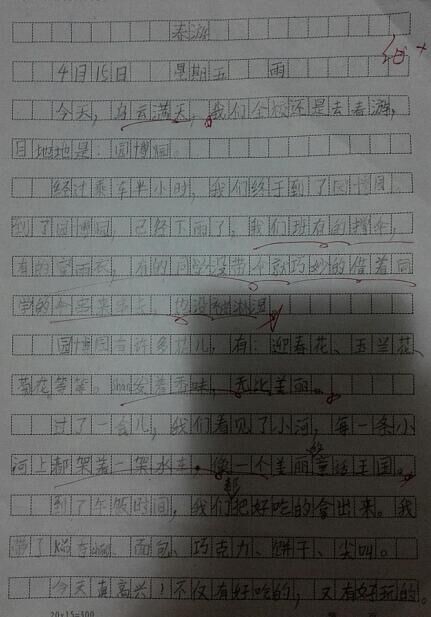 春游
4月15日 星期五 雨
今天,乌云满天,我们全校还是去春游,
目地地是:园博园。
经过乘车半小时,我们终于到了园博园。
到了园博园,已经下雨了,我们班有的撑伞,
有的穿雨衣,有的同学没带伞就巧妙的借着同
学的伞 也没被淋湿
园博园有许多花儿,有:迎春花、玉兰花、
菊花等等。shan发着香味,无比美丽。
过了一会儿,我们看见了小河,每一条小
河上都架着一架水车,像一个美丽的童话王国。
到了午饭时间,我们都把好吃的拿出来。我
带了 面包、巧克力、饼干、尖叫。
今天真高兴!不仅有好吃的,又有好玩的。
20×15=300